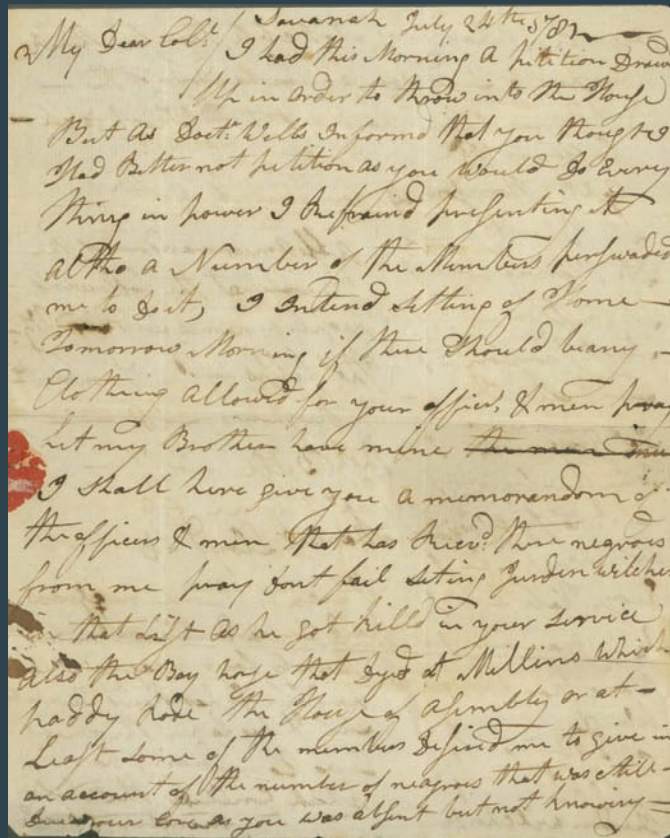 Savanah July 24th 1782
My Dear Colo.
I had this Morning A Petition Drawn
Up in order to throw into the House
But As Doctr. Wells Informd that you thought I
Had Better not petition as you would Do Every
thing in power I Refraind presenting it
altho a Number of the Members perswaded
me to do it, I Intend setting of Home
Tomorrow Morning if there Should be any
Clothing allowed for your officers & men pray
Let my Brother have mine the men
I Shall here give you a memorandom of
the officers & men that has Recvd. there negroes
from me pray dont fail seting Jurden wilcher
in that List as he got killd in your service
also the Bay horse that dyed at Mellins which
paddy rode the House of Asembly or at
Least some of the members desired me to give in
an account of the number of neagroes that was still
your Core as you was absent but not knowing